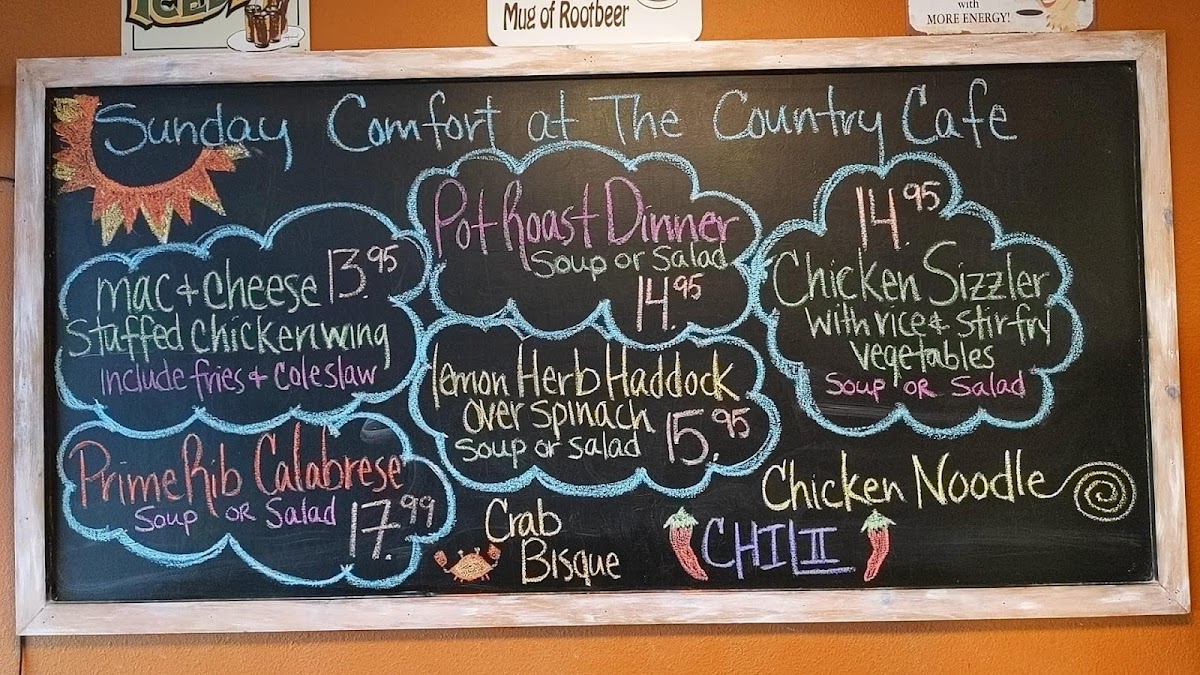 ICED
Mug of Rootbeer
with
MORE ENERGY!
Sunday Comfort at The Country Cafe
mac & cheese 13.95
Stuffed Chicken wing
Include fries & coleslaw
Pot Roast Dinner
Soup or Salad
14.95
14.95
Chicken Sizzler
with rice & stir fry
vegetables
Soup OR Salad
lemon Herb Haddock
over spinach
Soup or salad 15.95
Prime Rib Calabrese
Soup OR Salad
17.99
Crab
Bisque
CHILII
Chicken Noodle